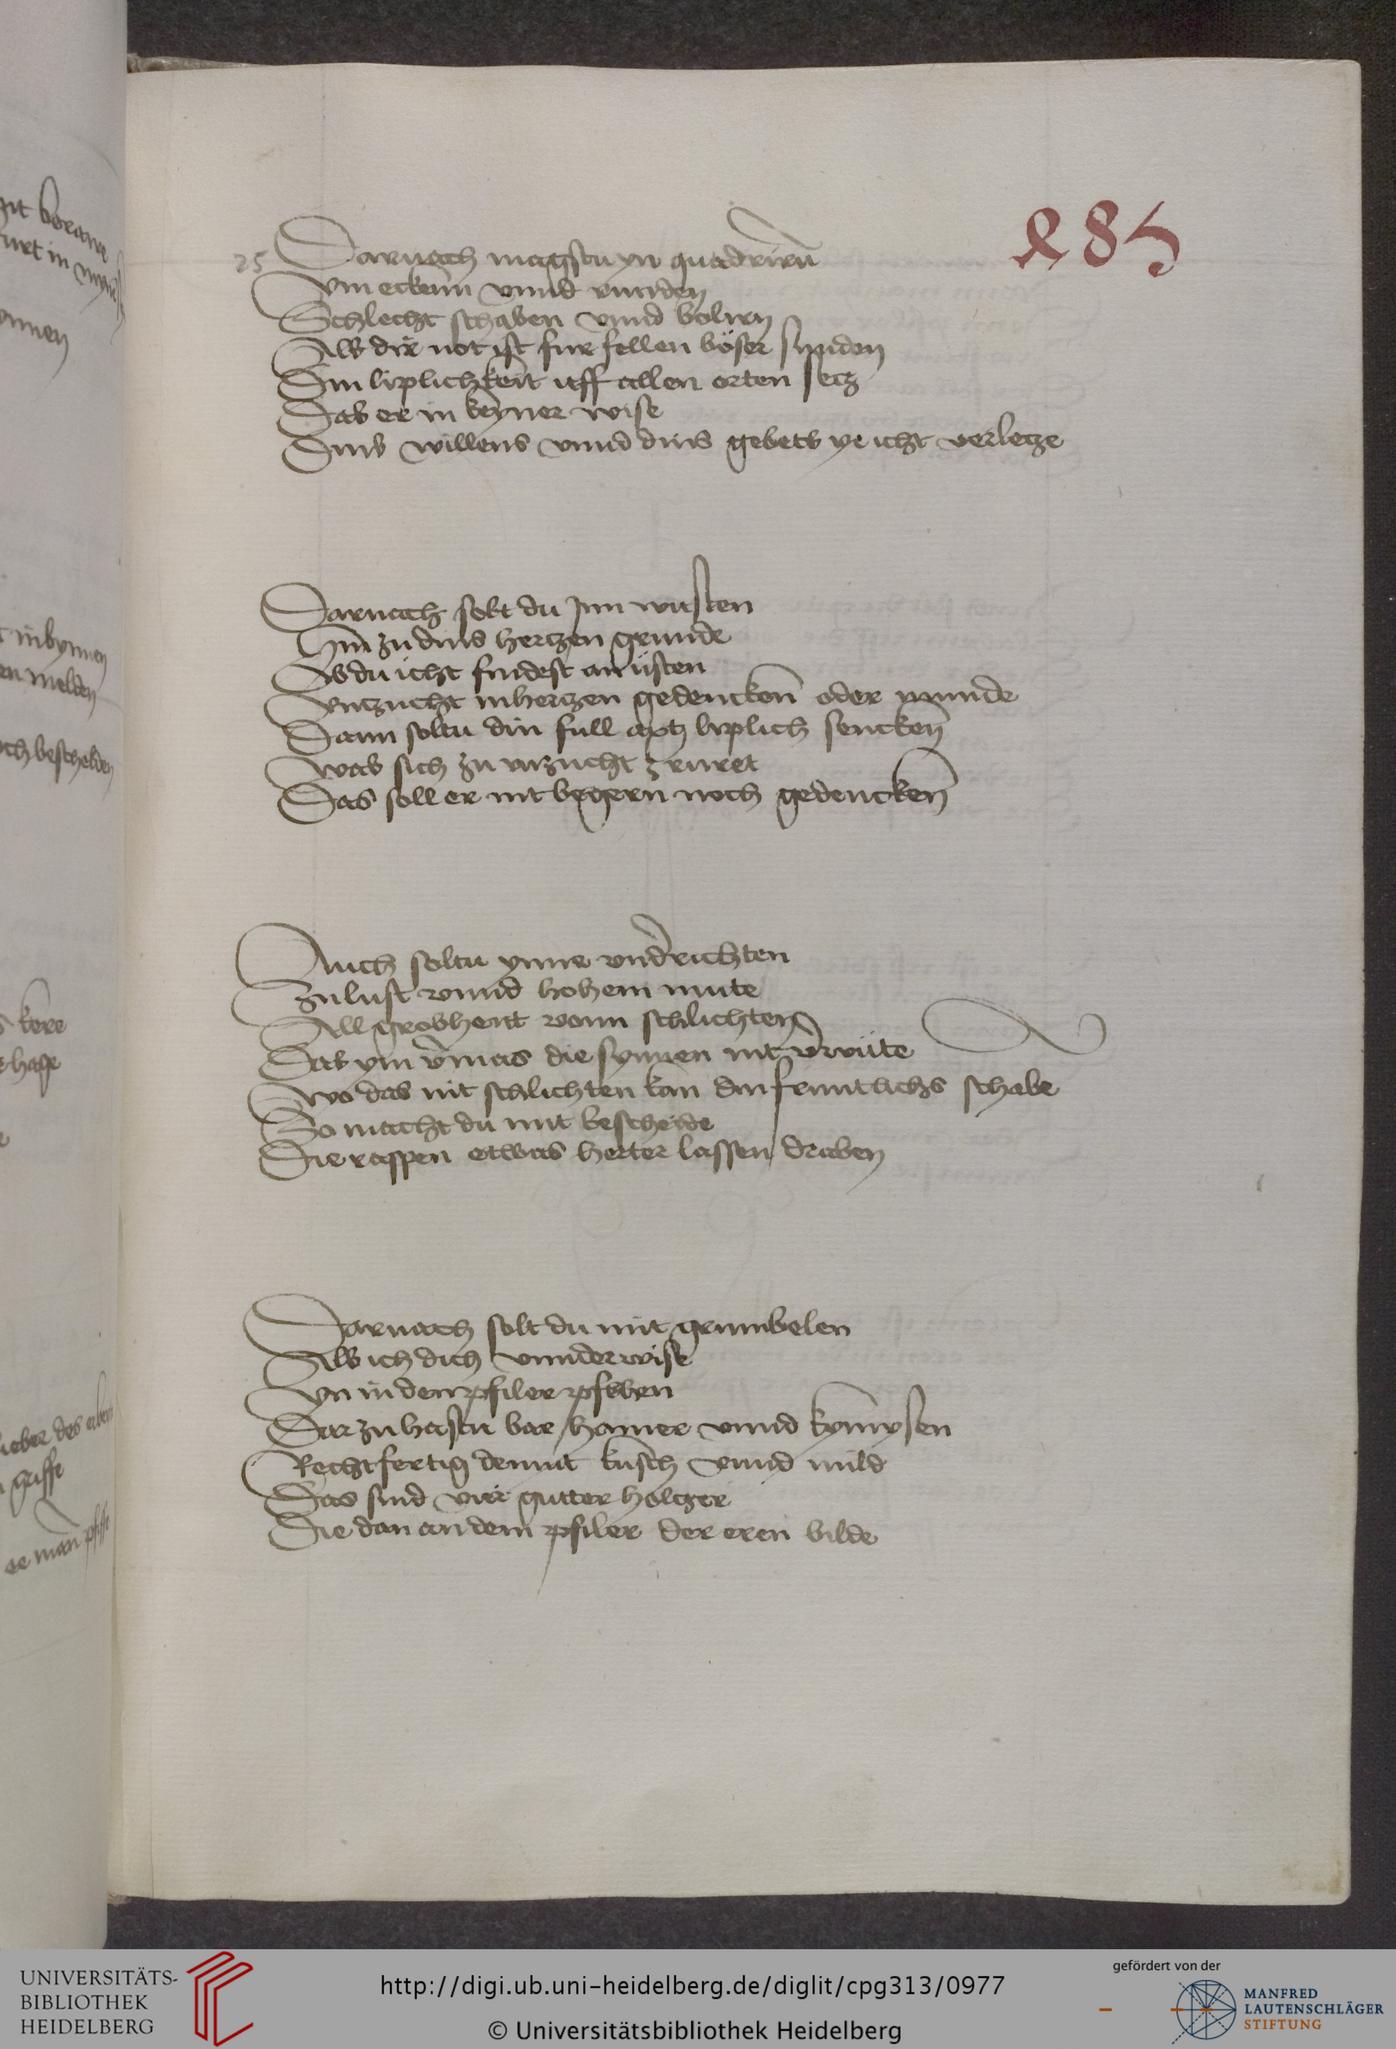 485
25 Darnach magstu yn quadrirn̄
Vm eckenn vnnd runden
Schlecht schaben vnnd bolirn
Als dir not ist fur fellen böser sunden
Din liplichkeit uff allen orten setz
Das er in keyner wise
Dins willens vnnd dins gebets ye icht verletze
Darnach solt du Inn wusten
Hin zu dins hertzen grunde
Ob du icht findest an üsten
Vnzucht in hertzen gedencken oder munde
Dann soltu din full axtz liplich sencken
Was sich zu vnzucht ruret
Das soll er nit begern noch gedencken
Auch soltu ynne vnderichten
Zu lust vnnd hohem mute
All grobheit vonn schlichten
Das ym vnmas die synnen nit verwüte
Wo das nit schlichten kan din fruntlichs schabe
So macht du mit bescheide
Die raspen etwas herter lassen draben
Darnach solt du mit grunbelen
Als ich dich vnnder wise
Yn in den pfiler
Dar zu hastu bar hamer vnnd kymysen
Rechtfertig demut kusch vnnd mild
Das sind vier gutter holtzer
Die dan an dem pfiler der eren bilde
git
furt in
in bynnen
melden
och bescheiden
kere
habe
lieber des
griffe
man
UNIVERSITÄTS-
BIBLIOTHEK
HEIDELBERG
http://digi.ub.uni-heidelberg.de/diglit/cpg313/0977
© Universitätsbibliothek Heidelberg
gefördert von der
MANFRED
LAUTENSCHLÄGER
STIFTUNG